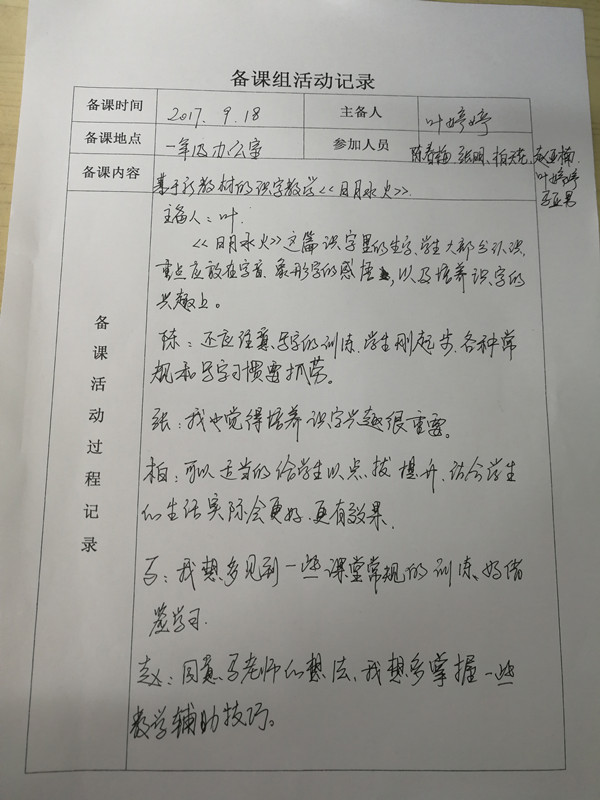 备课组活动记录
备课时间 2017. 9. 18 主备人 叶婷婷
备课地点 一年级办公室 参加人员 陈春梅 张 柏 赵亚楠
叶婷婷
马亚男
备课内容 基于新教材的识字教学《日月水火》.
备课活动过程记录
主备人：叶.
《日月水火》这篇识字里的生字，学生大部分认识，
重点应放在字音、象形字的感悟，以及培养识字的
兴趣上。
陈：还应注意写字的训练，学生刚起步，各种常
规和写字习惯需抓劳。
张：我也觉得培养识字兴趣很重要。
柏：可以适当的给学生以点拔提升，结合学生
的生活实际会更好，更有效果.
马：我想多见到一些课堂常规的训练，好借
鉴学习.
赵：同意马老师的想法，我想多掌握一些
教学辅助技巧。